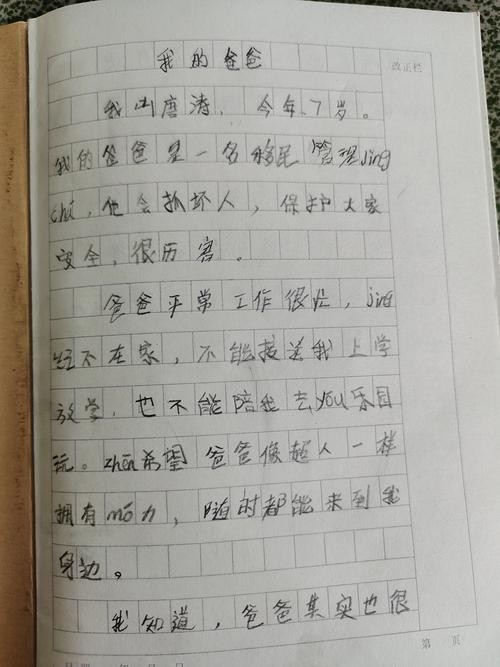 我的爸爸
改正栏
我叫唐涛,今年7岁。
我的爸爸是一名移民管理jing
chá,他会抓坏人,保护大家
安全,很历害。
爸爸平常工作很忙,jing
经不在家,不能接送我上学
放学,也不能陪我去you乐园
玩。zhēn希望爸爸像超人一样
拥有mó力,随时都能来到我
身边。
我知道,爸爸其实也很
第 页